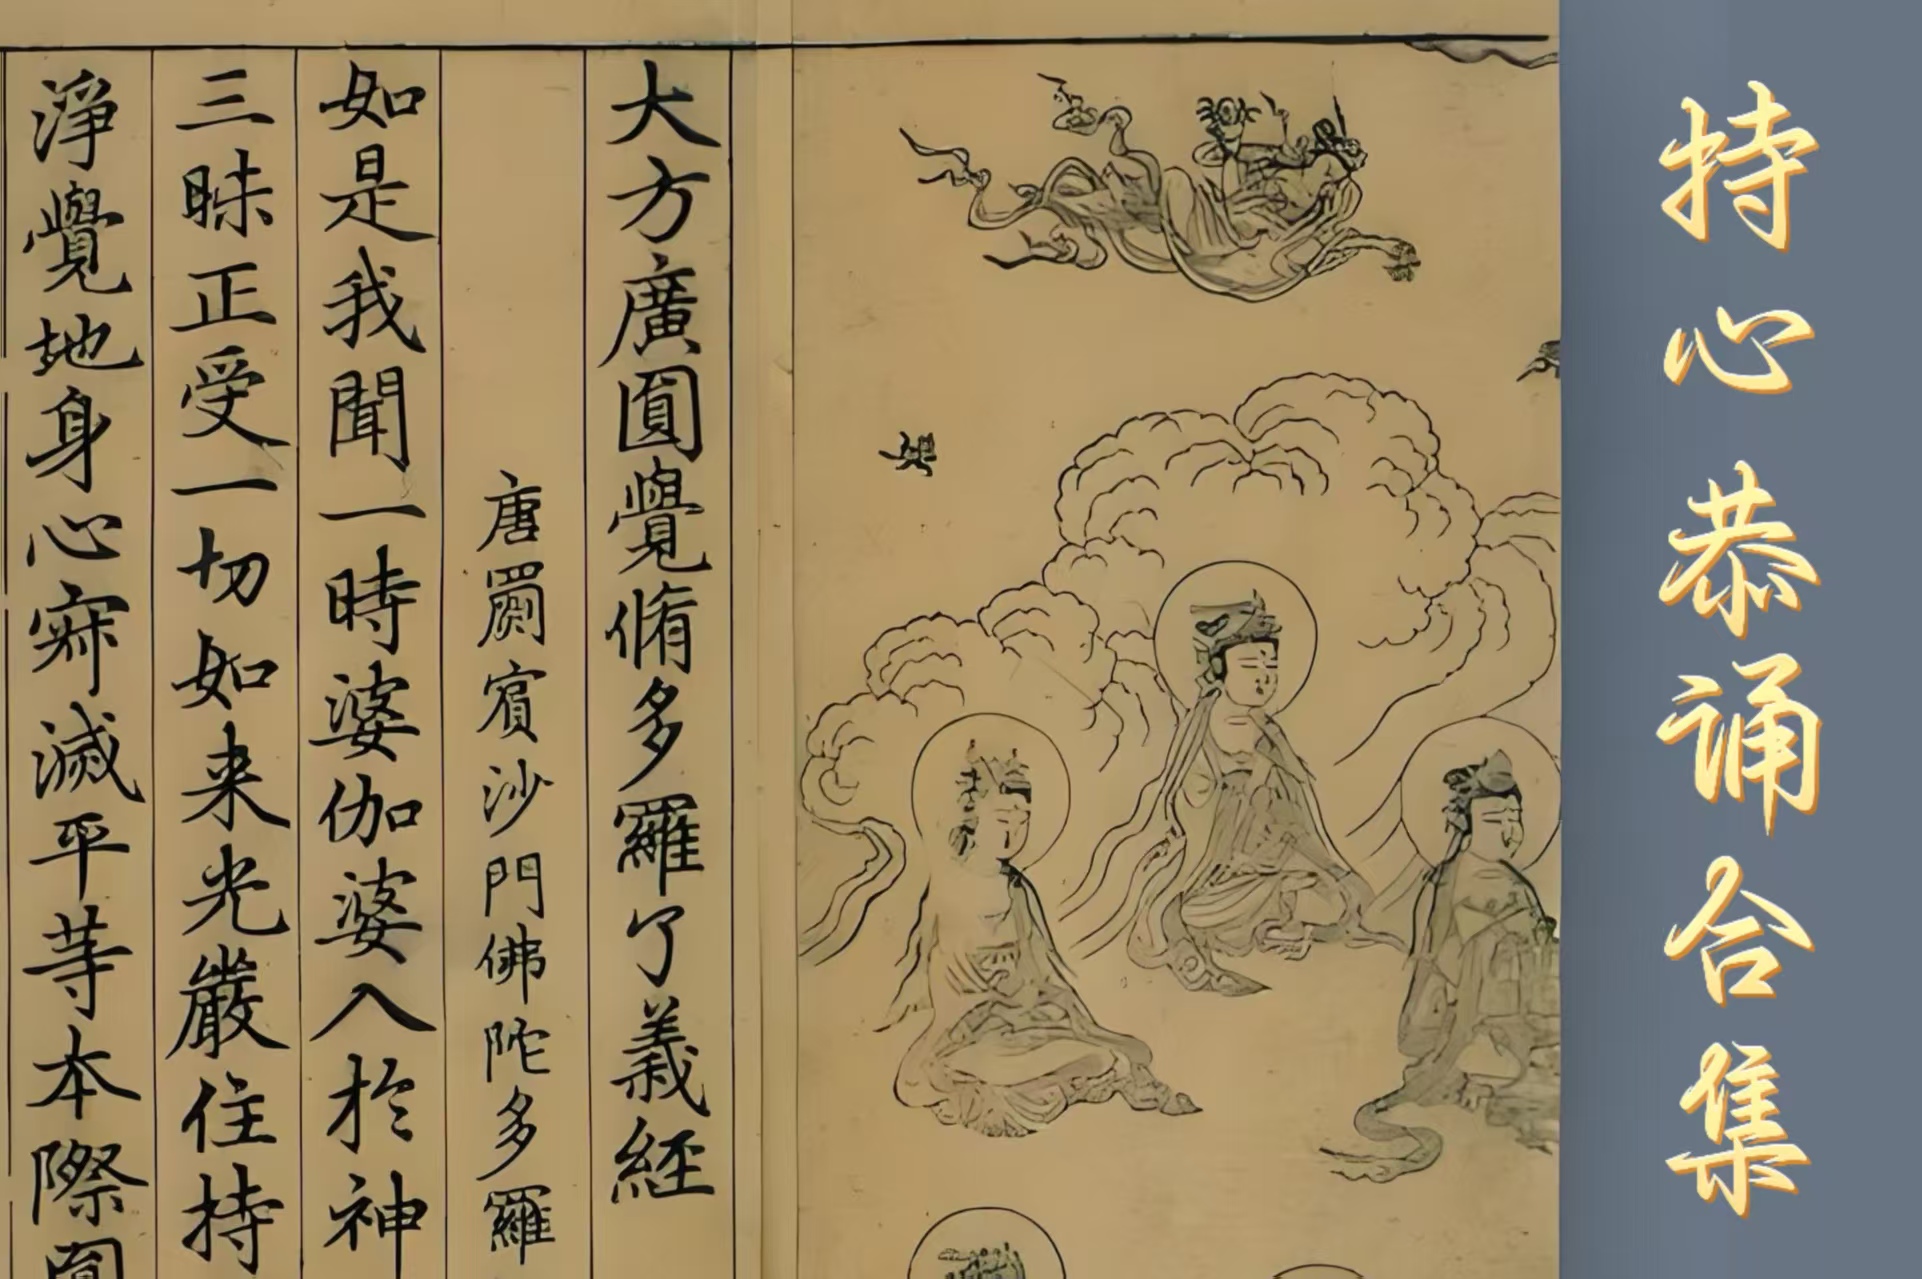 持心恭诵合集
大方廣圓覺脩多羅了義經
唐罽賓沙門佛陀多羅
如是我聞一時婆伽婆入於神
三昧正受一切如来光嚴住持
淨覺地身心寂滅平等本際圓